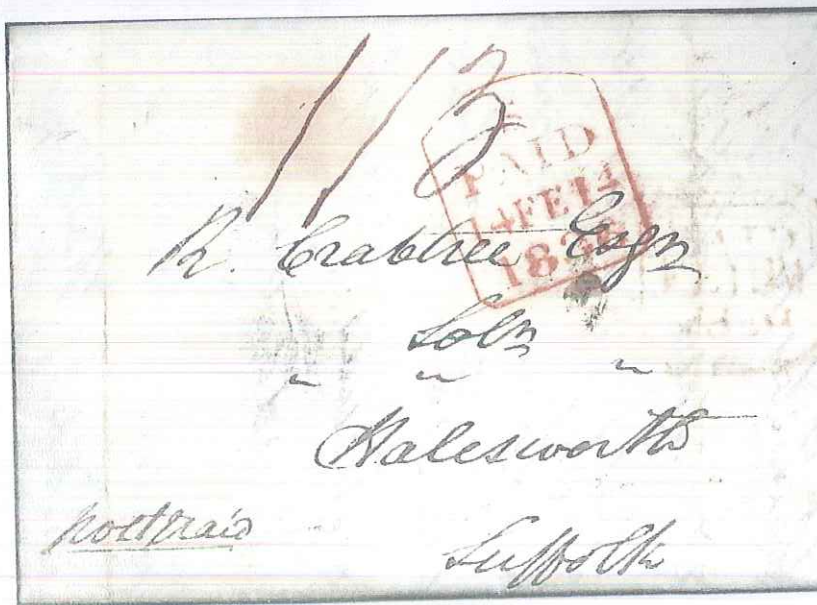 1/3
PAID
14 FE 14
1836
R. Crabtree Esqr
Solr
Halesworth
Suffolk
postpaid